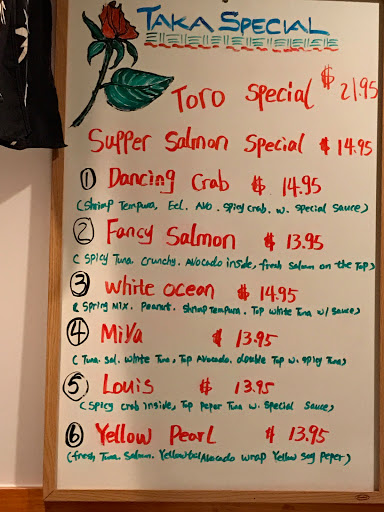 TAKA SPECIAL
Toro Special $21.95
Supper Salmon Special $14.95
① Dancing Crab $14.95
(Shrimp Tempura, Eel. Avo. Spicy crab. w. special Sauce)
② Fancy Salmon $13.95
(Spicy Tuna. Crunchy. Avocado inside, fresh Salmon on the Top)
③ White Ocean $14.95
(Spring Mix. Peanut. Shrimp Tempura. Top White Tuna w/ Sauce)
④ Miya $13.95
(Tuna. Sal. White Tuna, Top Avocado. double Top w. Spicy Tuna)
⑤ Louis $13.95
(Spicy crab inside, Top Peper Tuna w. Special Sauce)
⑥ Yellow Pearl $13.95
(fresh Tuna. Salmon. Yellowtail Avocado wrap Yellow Soy Peper)